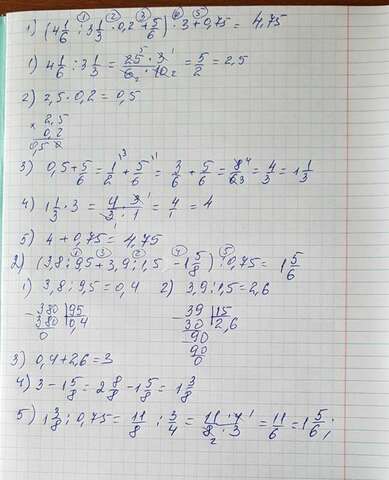 1) (4 1/6 : 3 1/3 · 0,2 + 5/6) · 3 + 0,75 = 4,75
1) 4 1/6 : 3 1/3 = 25 · 3 / 6 · 10 = 5/2 = 2,5
2) 2,5 · 0,2 = 0,5
× 2,5
0,2
0,5 0
3) 0,5 + 5/6 = 1/2 + 5/6 = 3/6 + 5/6 = 8/6 = 4/3 = 1 1/3
4) 1 1/3 · 3 = 4 · 3 / 3 · 1 = 4/1 = 4
5) 4 + 0,75 = 4,75
2) (3,8 : 9,5 + 3,9 : 1,5 - 1 5/8) : 0,75 = 1 5/6
1) 3,8 : 9,5 = 0,4 2) 3,9 : 1,5 = 2,6
- 380 | 95 - 39 | 15
380 | 0,4 30 | 2,6
0 90
90
0
3) 0,4 + 2,6 = 3
4) 3 - 1 5/8 = 2 8/8 - 1 5/8 = 1 3/8
5) 1 3/8 : 0,75 = 11/8 : 3/4 = 11 · 4 / 8 · 3 = 11/6 = 1 5/6;